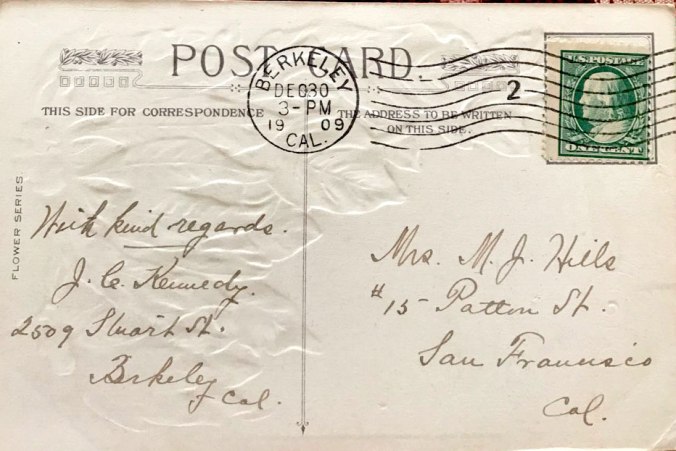 POST CARD
BERKELEY
DEC30
3-PM
1909
CAL.
2
U.S. POSTAGE
ONE CENT
THIS SIDE FOR CORRESPONDENCE
THE ADDRESS TO BE WRITTEN
ON THIS SIDE.
FLOWER SERIES
With kind regards.
J. C. Kennedy.
2509 Stuart St.
Berkeley
Cal.
Mrs. M. J. Hills
#15 Patton St.
San Francisco
Cal.